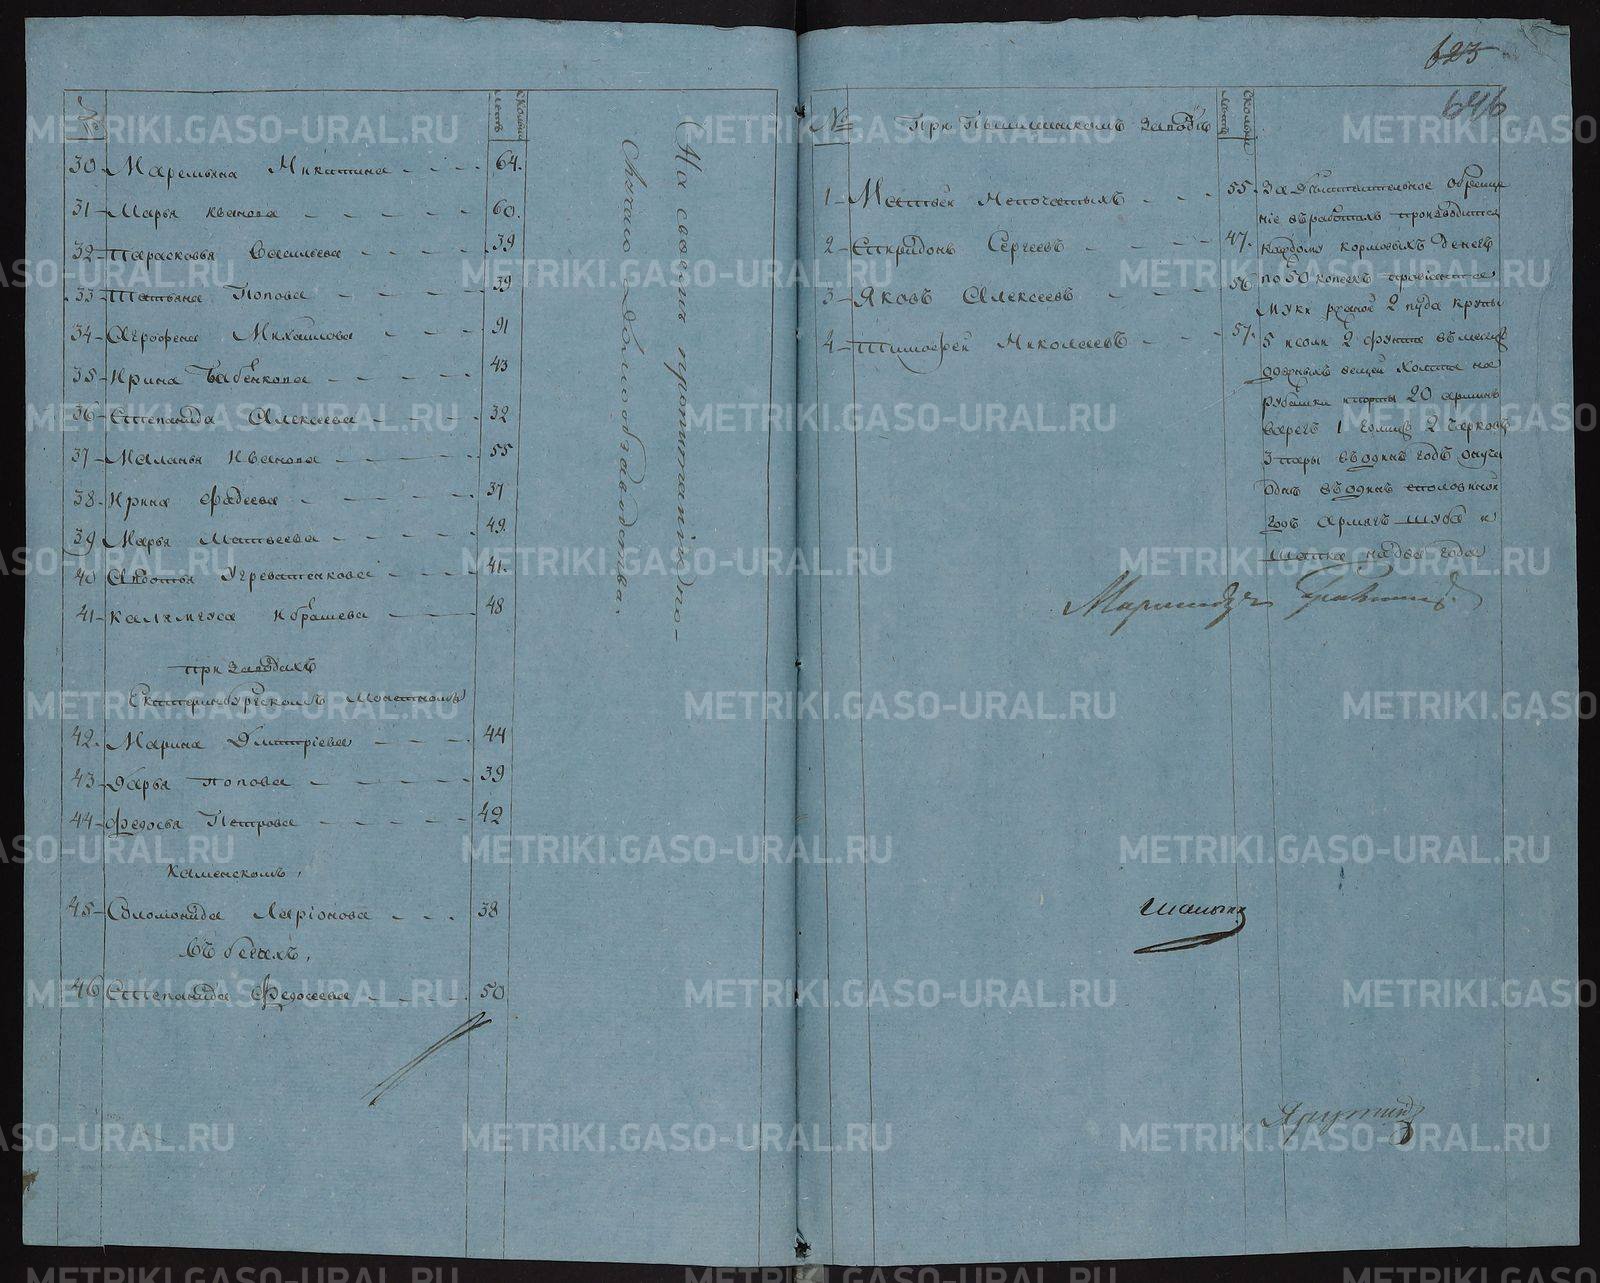 №
сколько лѣтъ
30 Маремьяна Никитина 64.
31 Марья Иванова 60.
32 Парасковья Васильева 39
33 Татьяна Попова 39
34 Агрофена Михайлова 91
35 Ирина Бабенкова 43
36 Степанида Алексѣева 32
37 Маланья Иванова 55
38 Ирина Фадеева 37
39 Марья Матвеева 49.
40 Авдотья 41.
41 Ибрашева 48
При заводахъ
Екатеринбургскомъ Монетномъ
42. Марина Дмитріева 44
43 Дарья Попова 39
44 Федосья Петрова 42
Каменскомъ,
45 Соломонида Ларіонова 38
Въ бегахъ,
46 Степанида Федосеева 50
На своемъ пропитаніи по
домообзаводства.
623
646
№
При Пышминскомъ заводѣ
сколько лѣтъ
1 Матвей Непочатыхъ 55.
2 Спиридонъ Сергеевъ 47.
3 Яковъ Алексеевъ 56
4 Тимофей Николаевъ 57.
За действительное обреще
ніе въ работахъ производится
каждому кормовыхъ денегъ
по 50 копеекъ провіанта
муки ржаной 2 пуда крупы
5 и соли 2 фунта въ месяцъ
одежныхъ вещей холста на
рубашки и порты 20 аршинъ
варегъ 1 голицъ 2 чарковъ
3 пары въ одинъ годъ онучи
одне въ одинъ споловиной
годъ армякъ шуба и
шапка на два года
METRIKI.GASO-URAL.RU